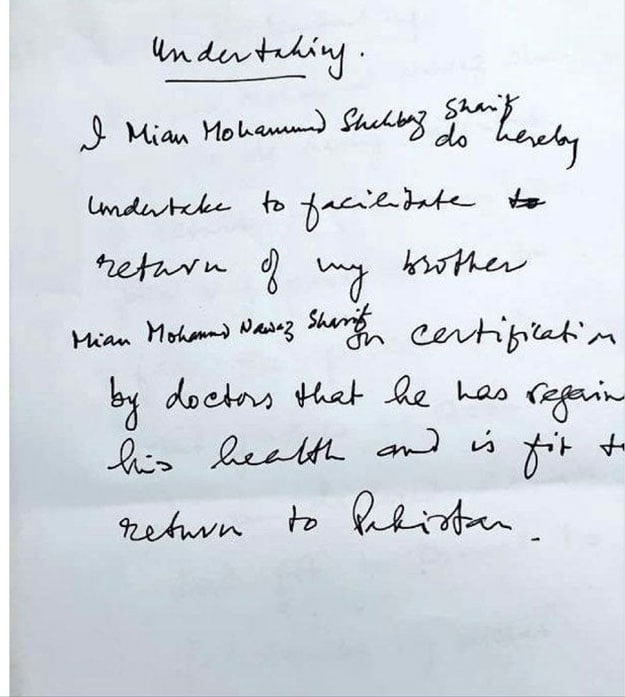 Undertaking.
I Mian Mohammad Shehbaz Sharif do hereby
undertake to facilitate to
return of my brother
Mian Mohammad Nawaz Sharif on certification
by doctors that he has regain
his health and is fit t
return to Pakistan.